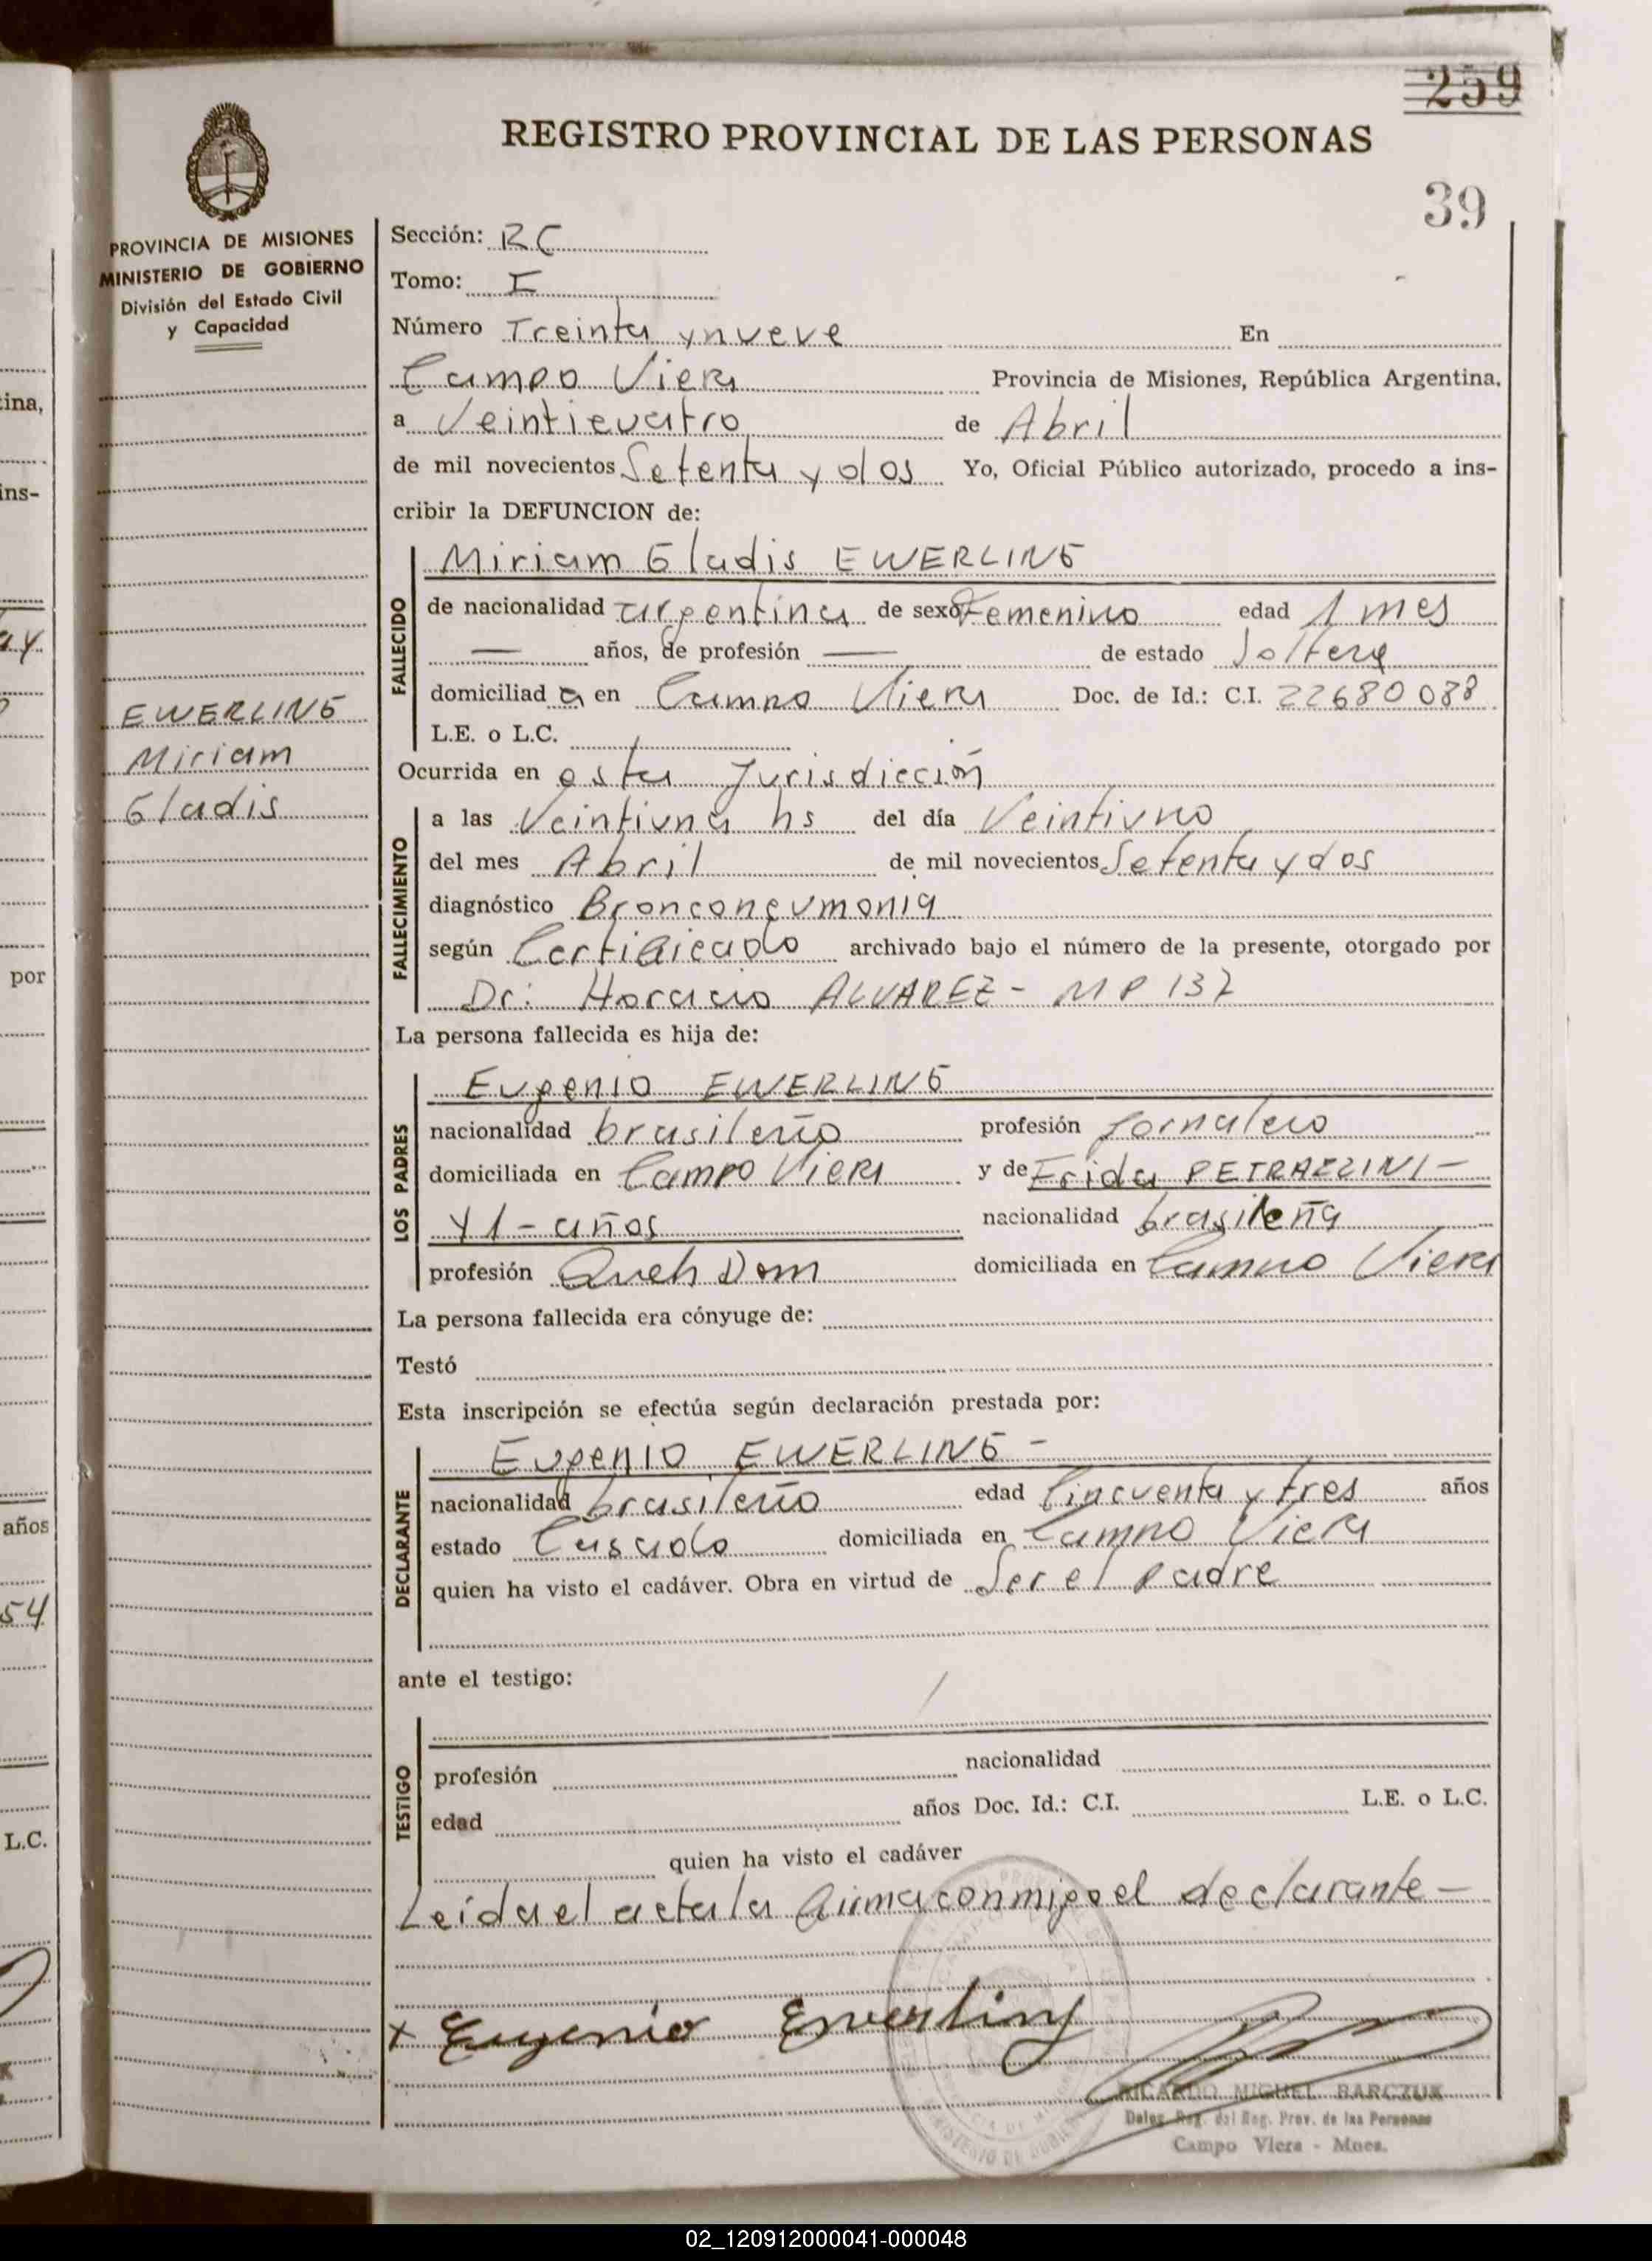 259
REGISTRO PROVINCIAL DE LAS PERSONAS
39
PROVINCIA DE MISIONES
MINISTERIO DE GOBIERNO
División del Estado Civil
y Capacidad
EWERLING
Miriam
Gladis
Sección: RC
Tomo: I
Número Treinta y nueve En
Campo Viera Provincia de Misiones, República Argentina,
a Veinticuatro de Abril
de mil novecientos Setenta y dos Yo, Oficial Público autorizado, procedo a ins-
cribir la DEFUNCION de:
FALLECIDO
Miriam Gladis EWERLING
de nacionalidad argentina de sexo Femenino edad 1 mes
— años, de profesión — de estado Soltera
domiciliad a en Campo Viera Doc. de Id.: C.I. 22680088
L.E. o L.C.
Ocurrida en esta Jurisdicción
FALLECIMIENTO
a las Veintiuna hs del día Veintiuno
del mes Abril de mil novecientos Setenta y dos
diagnóstico Bronconeumonia
según Certificado archivado bajo el número de la presente, otorgado por
Dr: Horacio ALVAREZ - MP 137
La persona fallecida es hija de:
LOS PADRES
Eugenio EWERLING
nacionalidad brasileño profesión Jornalero
domiciliada en Campo Viera y de Frida PETRAZZINI -
41 - años nacionalidad brasileña
profesión Queh Dom domiciliada en Campo Viera
La persona fallecida era cónyuge de:
Testó
Esta inscripción se efectúa según declaración prestada por:
DECLARANTE
Eugenio EWERLING -
nacionalidad brasileño edad Cincuenta y tres años
estado Casado domiciliada en Campo Viera
quien ha visto el cadáver. Obra en virtud de Ser el padre
ante el testigo:
TESTIGO
profesión nacionalidad
edad años Doc. Id.: C.I. L.E. o L.C.
quien ha visto el cadáver
Leida el acta la firma conmigo el declarante -
x Eugenio Ewerling
RICARDO MIGUEL BARCZUK
Deleg. Reg. del Reg. Prov. de las Personas
Campo Viera - Mnes.
02_120912000041-000048